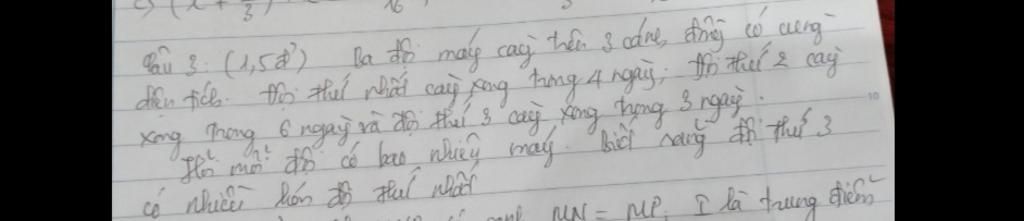 c) (x + 3) 16
Câu 3: (1,5đ) Ba đội máy cày trên 3 cánh đồng có cùng
diện tích. Đội thứ nhất cày xong trong 4 ngày, đội thứ 2 cày
xong trong 6 ngày và đội thứ 3 cày xong trong 3 ngày.
Hỏi mỗi đội có bao nhiêu máy. Biết rằng đội thứ 3
có nhiều hơn đội thứ nhất
MN = MP. I là trung điểm